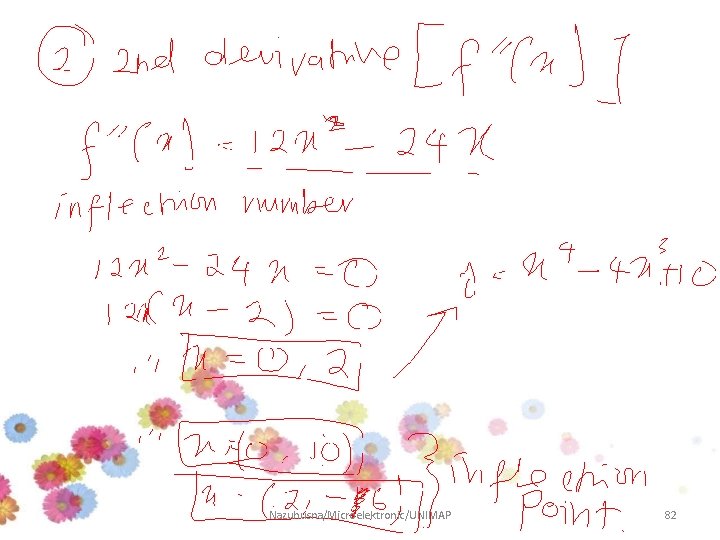 ② 2nd derivative [f''(x)]
f''(x) = 12x² - 24x
inflection number
12x² - 24x = 0
12x(x - 2) = 0
y = x⁴ - 4x³ + 10
∴ x = 0, 2
∴ x = (0, 10),
x = (2, -6)
} inflection point
Nazuhusna/Microelektronic/UNIMAP
82